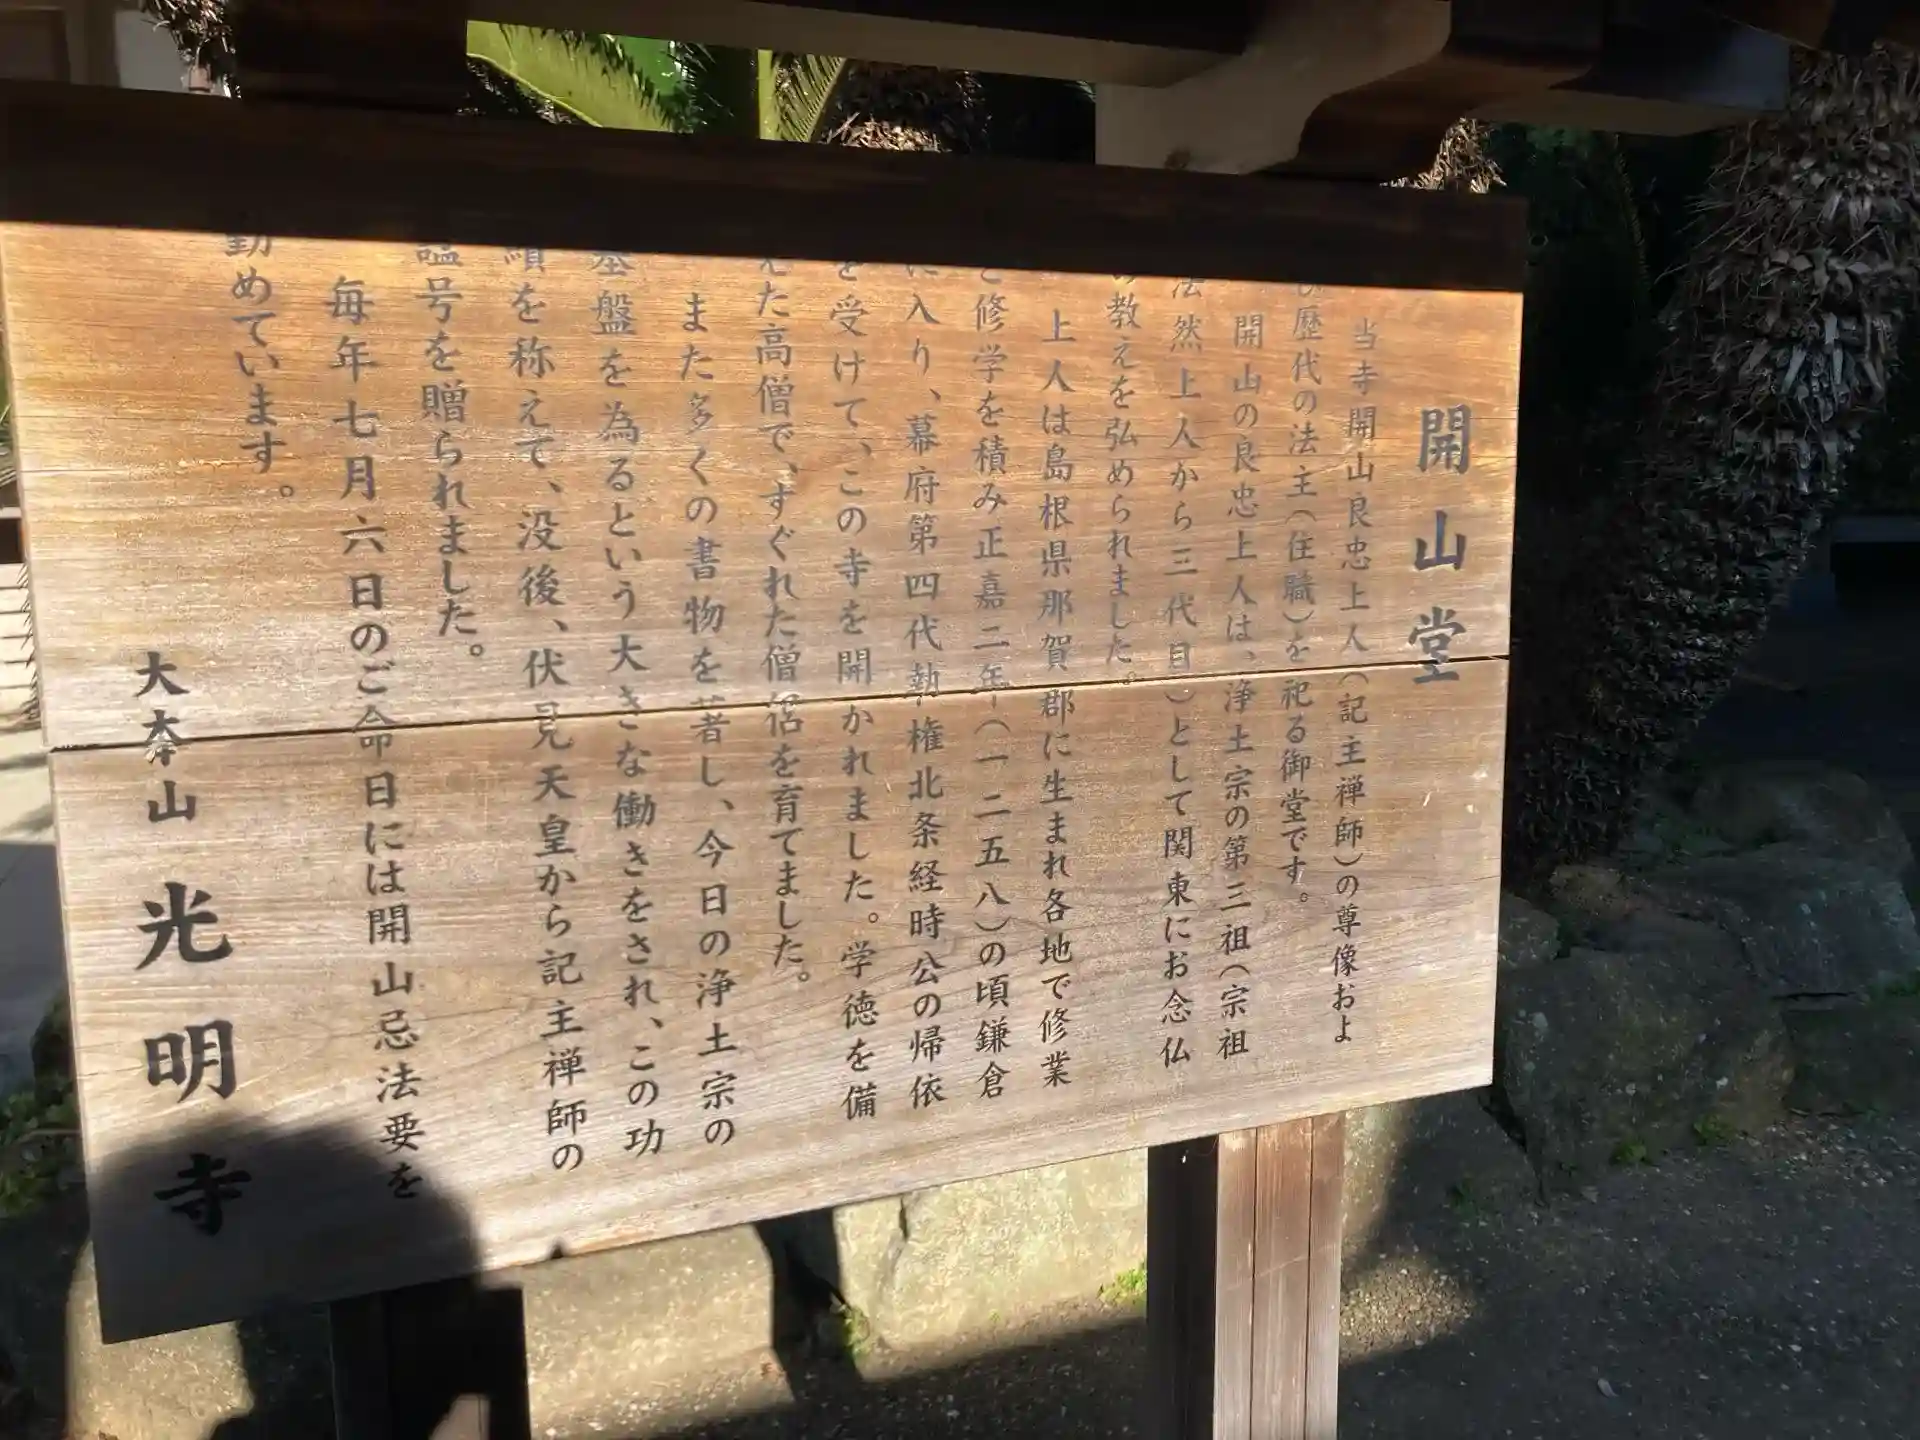 開山堂
当寺開山良忠上人（記主禅師）の尊像およ
び歴代の法主（住職）を祀る御堂です。
開山の良忠上人は、浄土宗の第三祖（宗祖
法然上人から三代目）として関東にお念仏
の教えを弘められました。
上人は島根県那賀郡に生まれ各地で修業
と修学を積み正嘉二年（一二五八）の頃鎌倉
に入り、幕府第四代執権北条経時公の帰依
を受けて、この寺を開かれました。学徳を備
えた高僧で、すぐれた僧侶を育てました。
また多くの書物を著し、今日の浄土宗の
基盤を為るという大きな働きをされ、この功
績を称えて、没後、伏見天皇から記主禅師の
諡号を贈られました。
毎年七月六日のご命日には開山忌法要を
勤めています。
大本山 光明寺